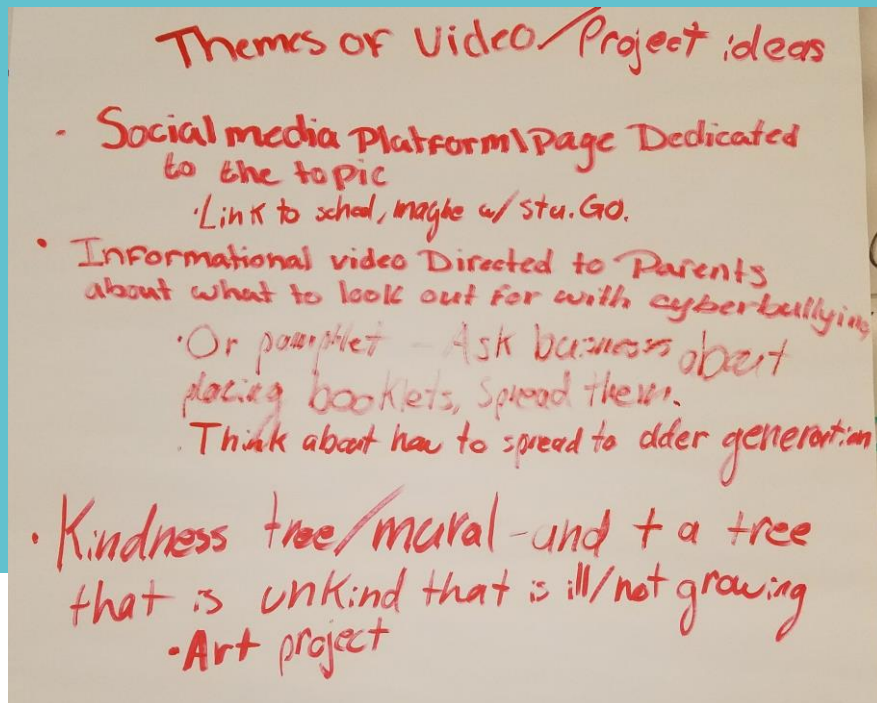 Themes of Video/Project ideas
· Social media Platform\Page Dedicated
to the topic
· Link to school, maybe w/ stu. Go.
· Informational video Directed to Parents
about what to look out for with cyberbullying
· Or pamphlet - Ask businesses about
placing booklets, Spread them.
· Think about how to spread to older generation
· Kindness tree/mural - and t a tree
that is unkind that is ill/not growing
· Art project